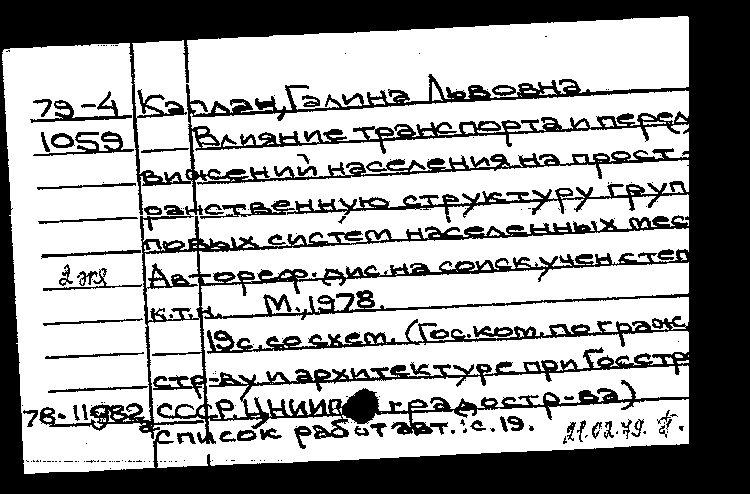 79-4 Каплан, Галина Львовна.
1059 Влияние транспорта и перед
вижений населения на прост-
ранственную структуру груп
повых систем населенных мес
2 экз Автореф. дис. на соиск. учен. степ
к.т.н. М., 1978.
19 с. со схем. (Гос. ком. по граж.
стр-ву и архитектуре при Госстр
78-11982 СССР. ЦНИИП градостр-ва)
список работ авт.: с. 19. 21.02.79.